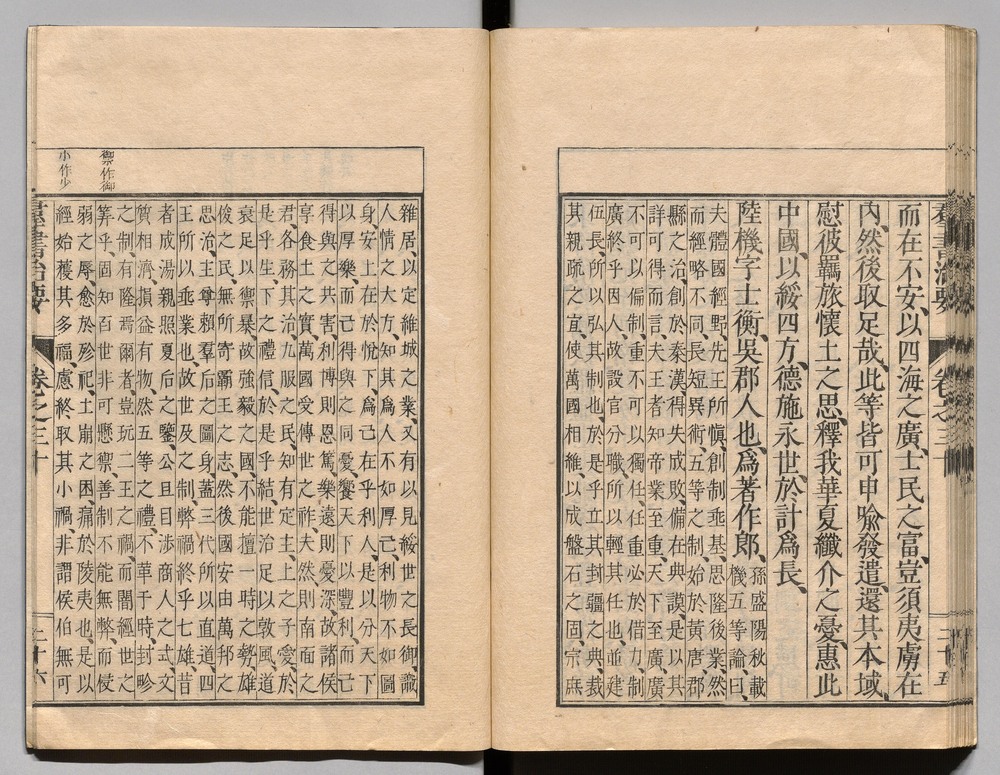 羣書治要 卷之三十 二十五
而在不安、以四海之廣、士民之富、豈須夷虜在
內、然後取足哉、此等皆可申喩發遣、還其本域、
慰彼羈旅懷土之思、釋我華夏纖介之憂、惠此
中國、以綏四方、德施永世、於計爲長、
陸機字士衡、吳郡人也、爲著作郎、
孫盛陽秋載
機五等論、曰、
夫體國經野、先王所愼、創制垂基、思隆後業、然
而經略不同、長短異術、五等之制、始於黃唐、郡
縣之治、創於秦漢、得失成敗、備在典謨、是以其
詳可得而言、夫王者知帝業至重、天下至廣、廣
不可以偏制、重不可以獨任、任重必於借力、制
廣終乎因人、故設官分職、所以輕其任也、並建
伍長、所以弘其制也、於是乎立其封疆之典、裁
其親疏之宜、使萬國相維、以成盤石之固、宗庶
雜居、以定維城之業、又有以見綏世之長御、識
人情之大方、知其爲人不如厚己、利物不如圖
身、安上在於悅下、爲己在乎利人、是以分天下
以厚樂、而己得與之同憂、饗天下以豐利、而己
得與之共害、利博則恩篤、樂遠則憂深、故諸侯
享食土之實、萬國受傳世之祚、夫然則南面之
君、各務其治、九服之民、知有定主、上之子愛於
是乎生、下之禮信、於是乎結、世治足以敦風、道
衰足以禦暴、故強毅之國、不能擅一時之勢、雄
俊之民、無所寄霸王之志、然後國安由萬邦之
思治、主尊賴羣后之圖身、蓋三代所以直道、四
王所以垂業也、故世及之制、弊禍終乎七雄、昔
者成湯親照夏后之鑒、公旦目涉商人之戒、文
質相濟、損益有物、然五等之禮、不革于時、封畛
之制、有隆焉爾者、豈玩二王之禍、而闇經世之
筭乎、固知百世非可懸禦、善制不能無弊、而侵
弱之辱、愈於殄祀、土崩之困、痛於陵夷也、是以
經始蒦其多福、慮終取其小禍、非謂侯伯無可
禦作御
小作少
羣書治要 卷之三十 二十六